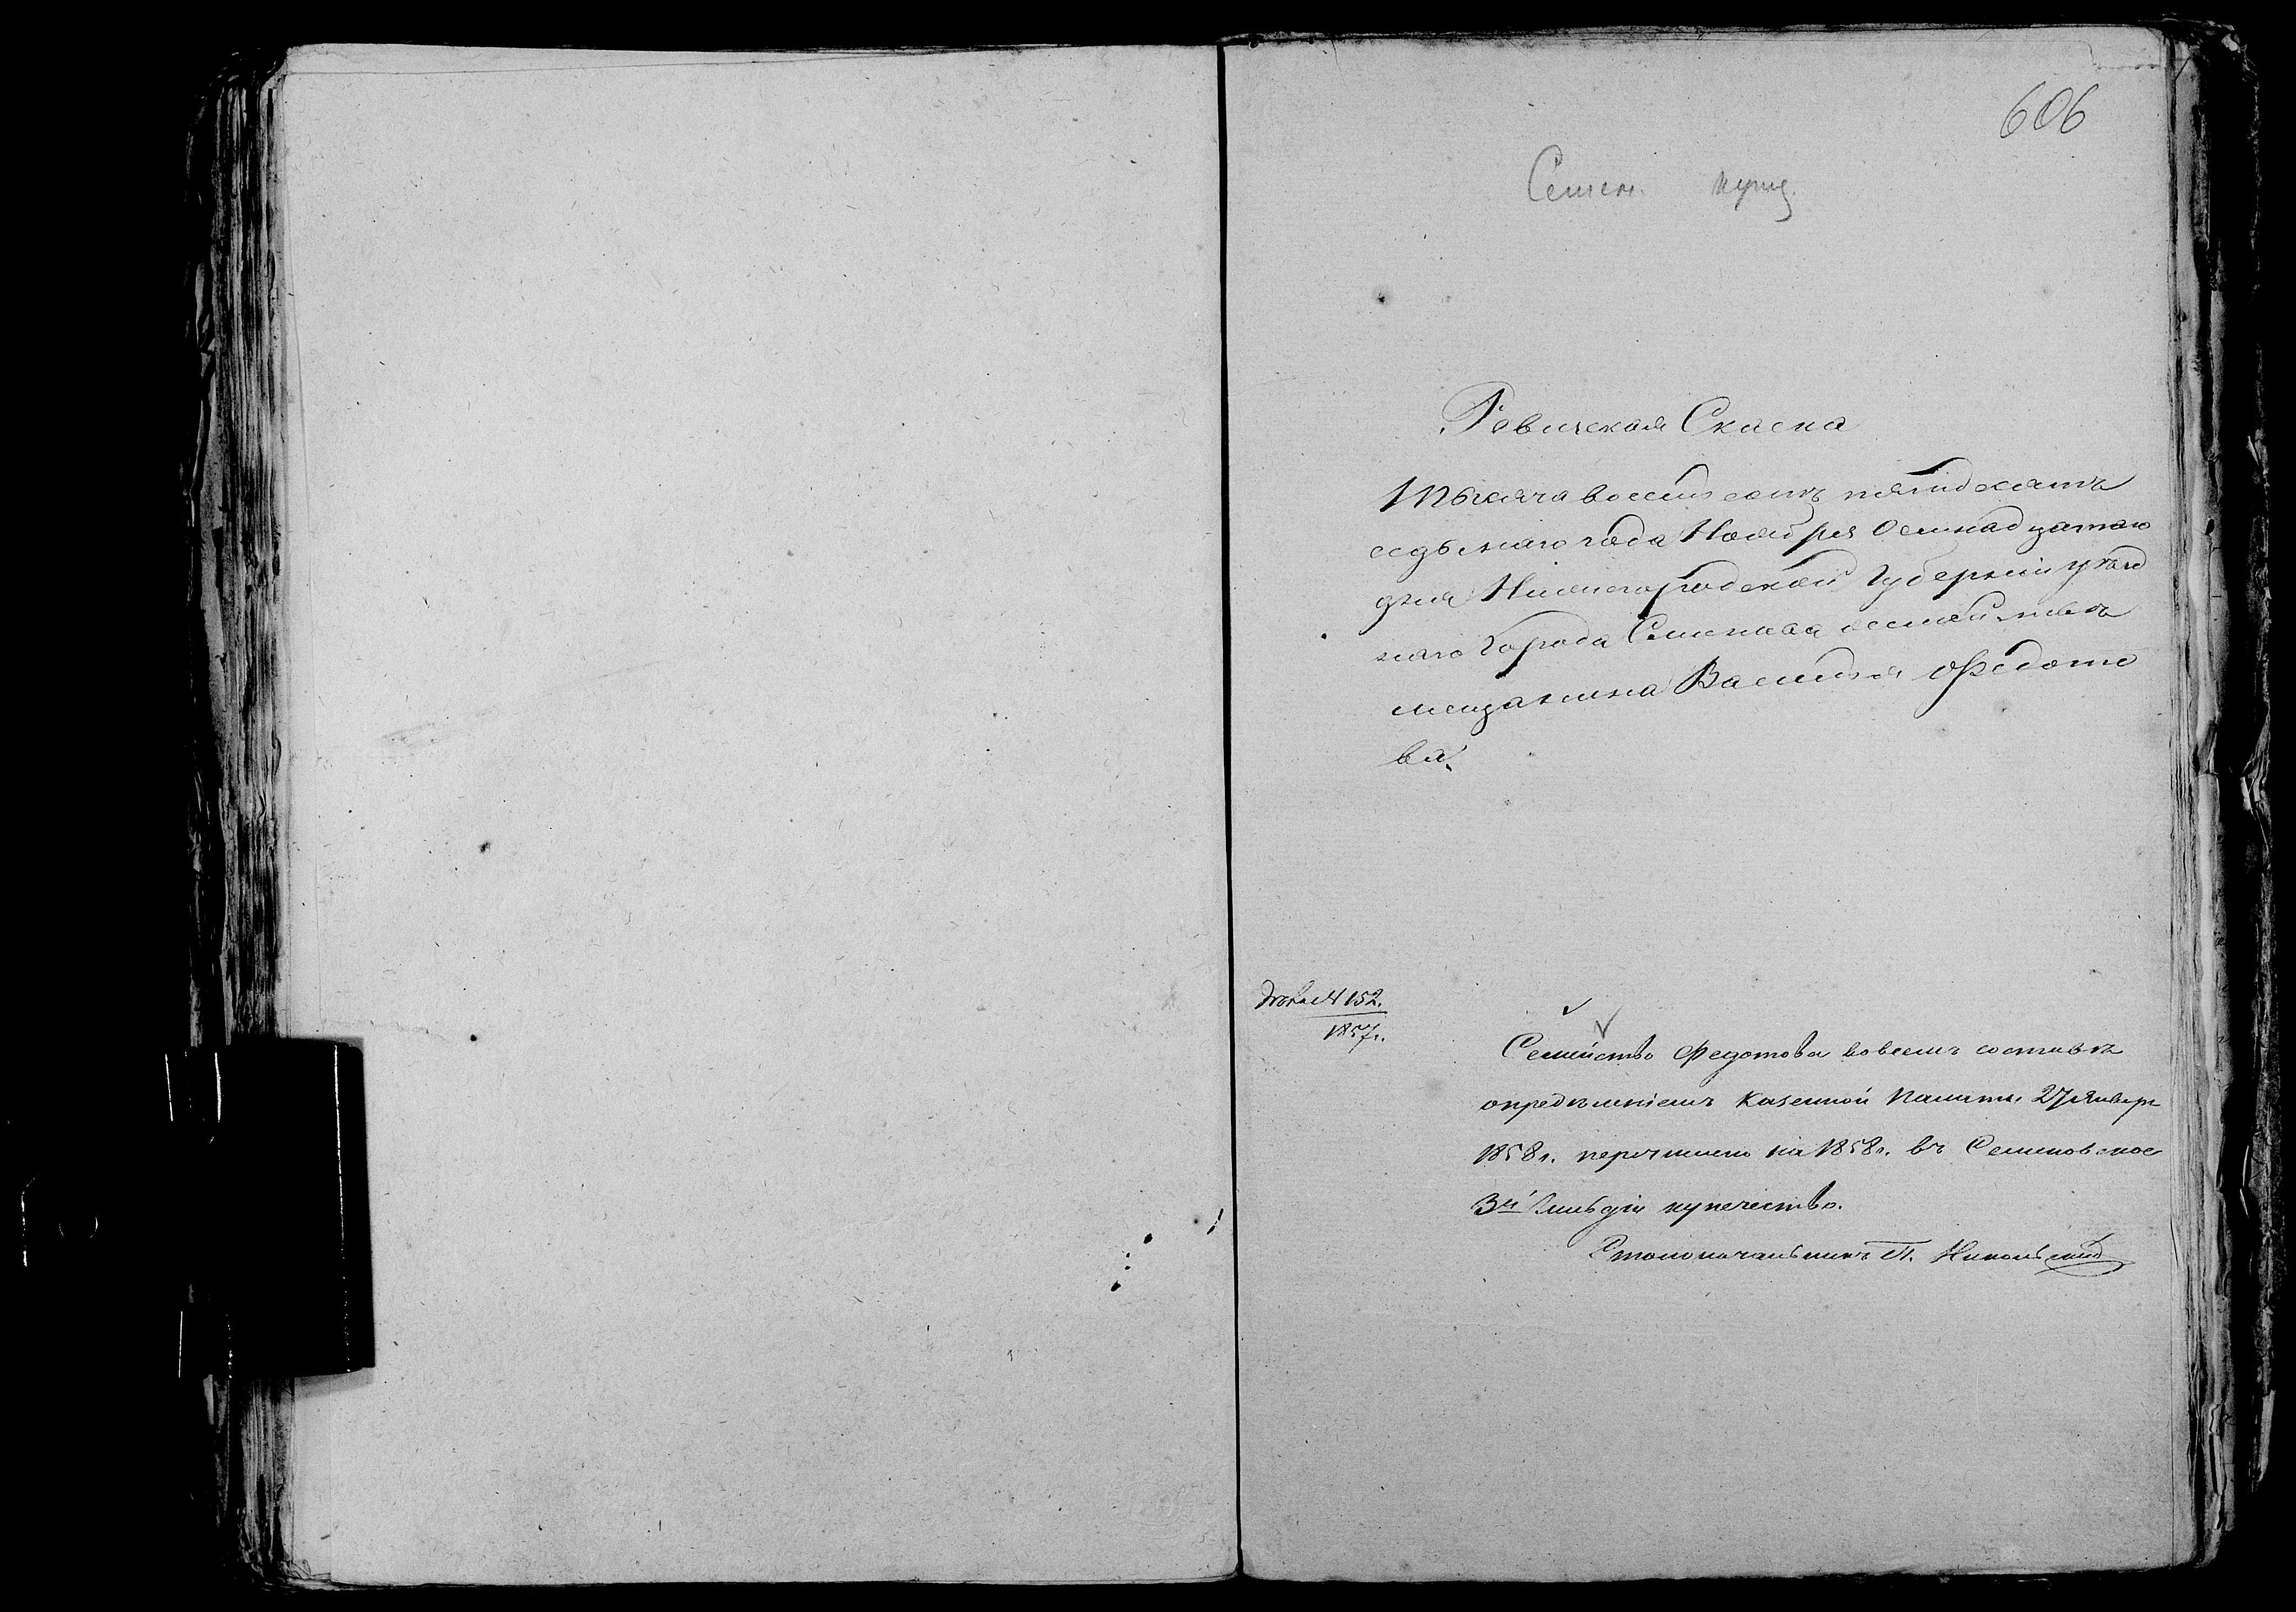 606
Семен. купц.
Ревиская Скаска
Тысяча восемь сотъ пятидесятъ
седьмаго года Ноября Осмнадцатаго
дня Нижегородской Губерніи уезд
наго Города Семенова
мещанина Василья Федото
ва.
Дѣло № 152.
1857г.
Семейство Федотова во всемъ составѣ
опредѣленіемъ Казенной Палаты 27 Января
1858г. перечислено на 1858г. въ Семеновское
3й Гильдіи купечество.
Столоначальникъ П. Никольский